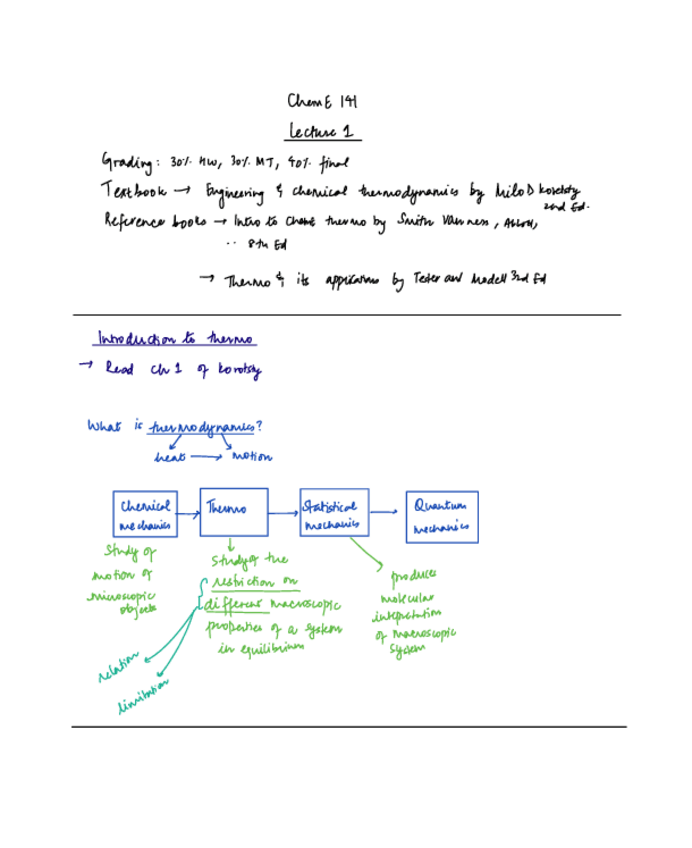 ChemE 141
Lecture 1
Grading: 30% HW, 30% MT, 40% final
Textbook → Engineering & chemical thermodynamics by Milo D Koretsky
2nd Ed.
Reference books → Intro to ChemE thermo by Smith Van ness, Abbott,
8th Ed
→ Thermo & its applications by Tester and Modell 3rd Ed
Introduction to thermo
→ Read Ch 1 of Koretsky
What is thermodynamics?
heat → motion
Chemical mechanics → Thermo → Statistical mechanics → Quantum mechanics
Study of
motion of
microscopic
objects
Study of the
restriction on
different macroscopic
properties of a system
in equilibrium
produces
molecular
intepretation
of macroscopic
system
relation
limitation